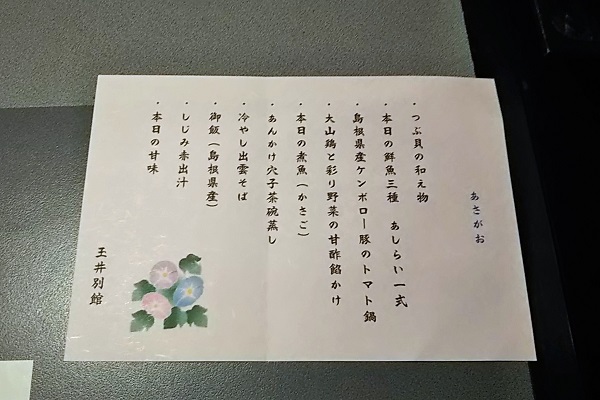 あさがお
・つぶ貝の和え物
・本日の鮮魚三種　あしらい一式
・島根県産ケンボロー豚のトマト鍋
・大山鶏と彩り野菜の甘酢餡かけ
・本日の煮魚（かさご）
・あんかけ穴子茶碗蒸し
・冷やし出雲そば
・御飯（島根県産）
・しじみ赤出汁
・本日の甘味
玉井別館